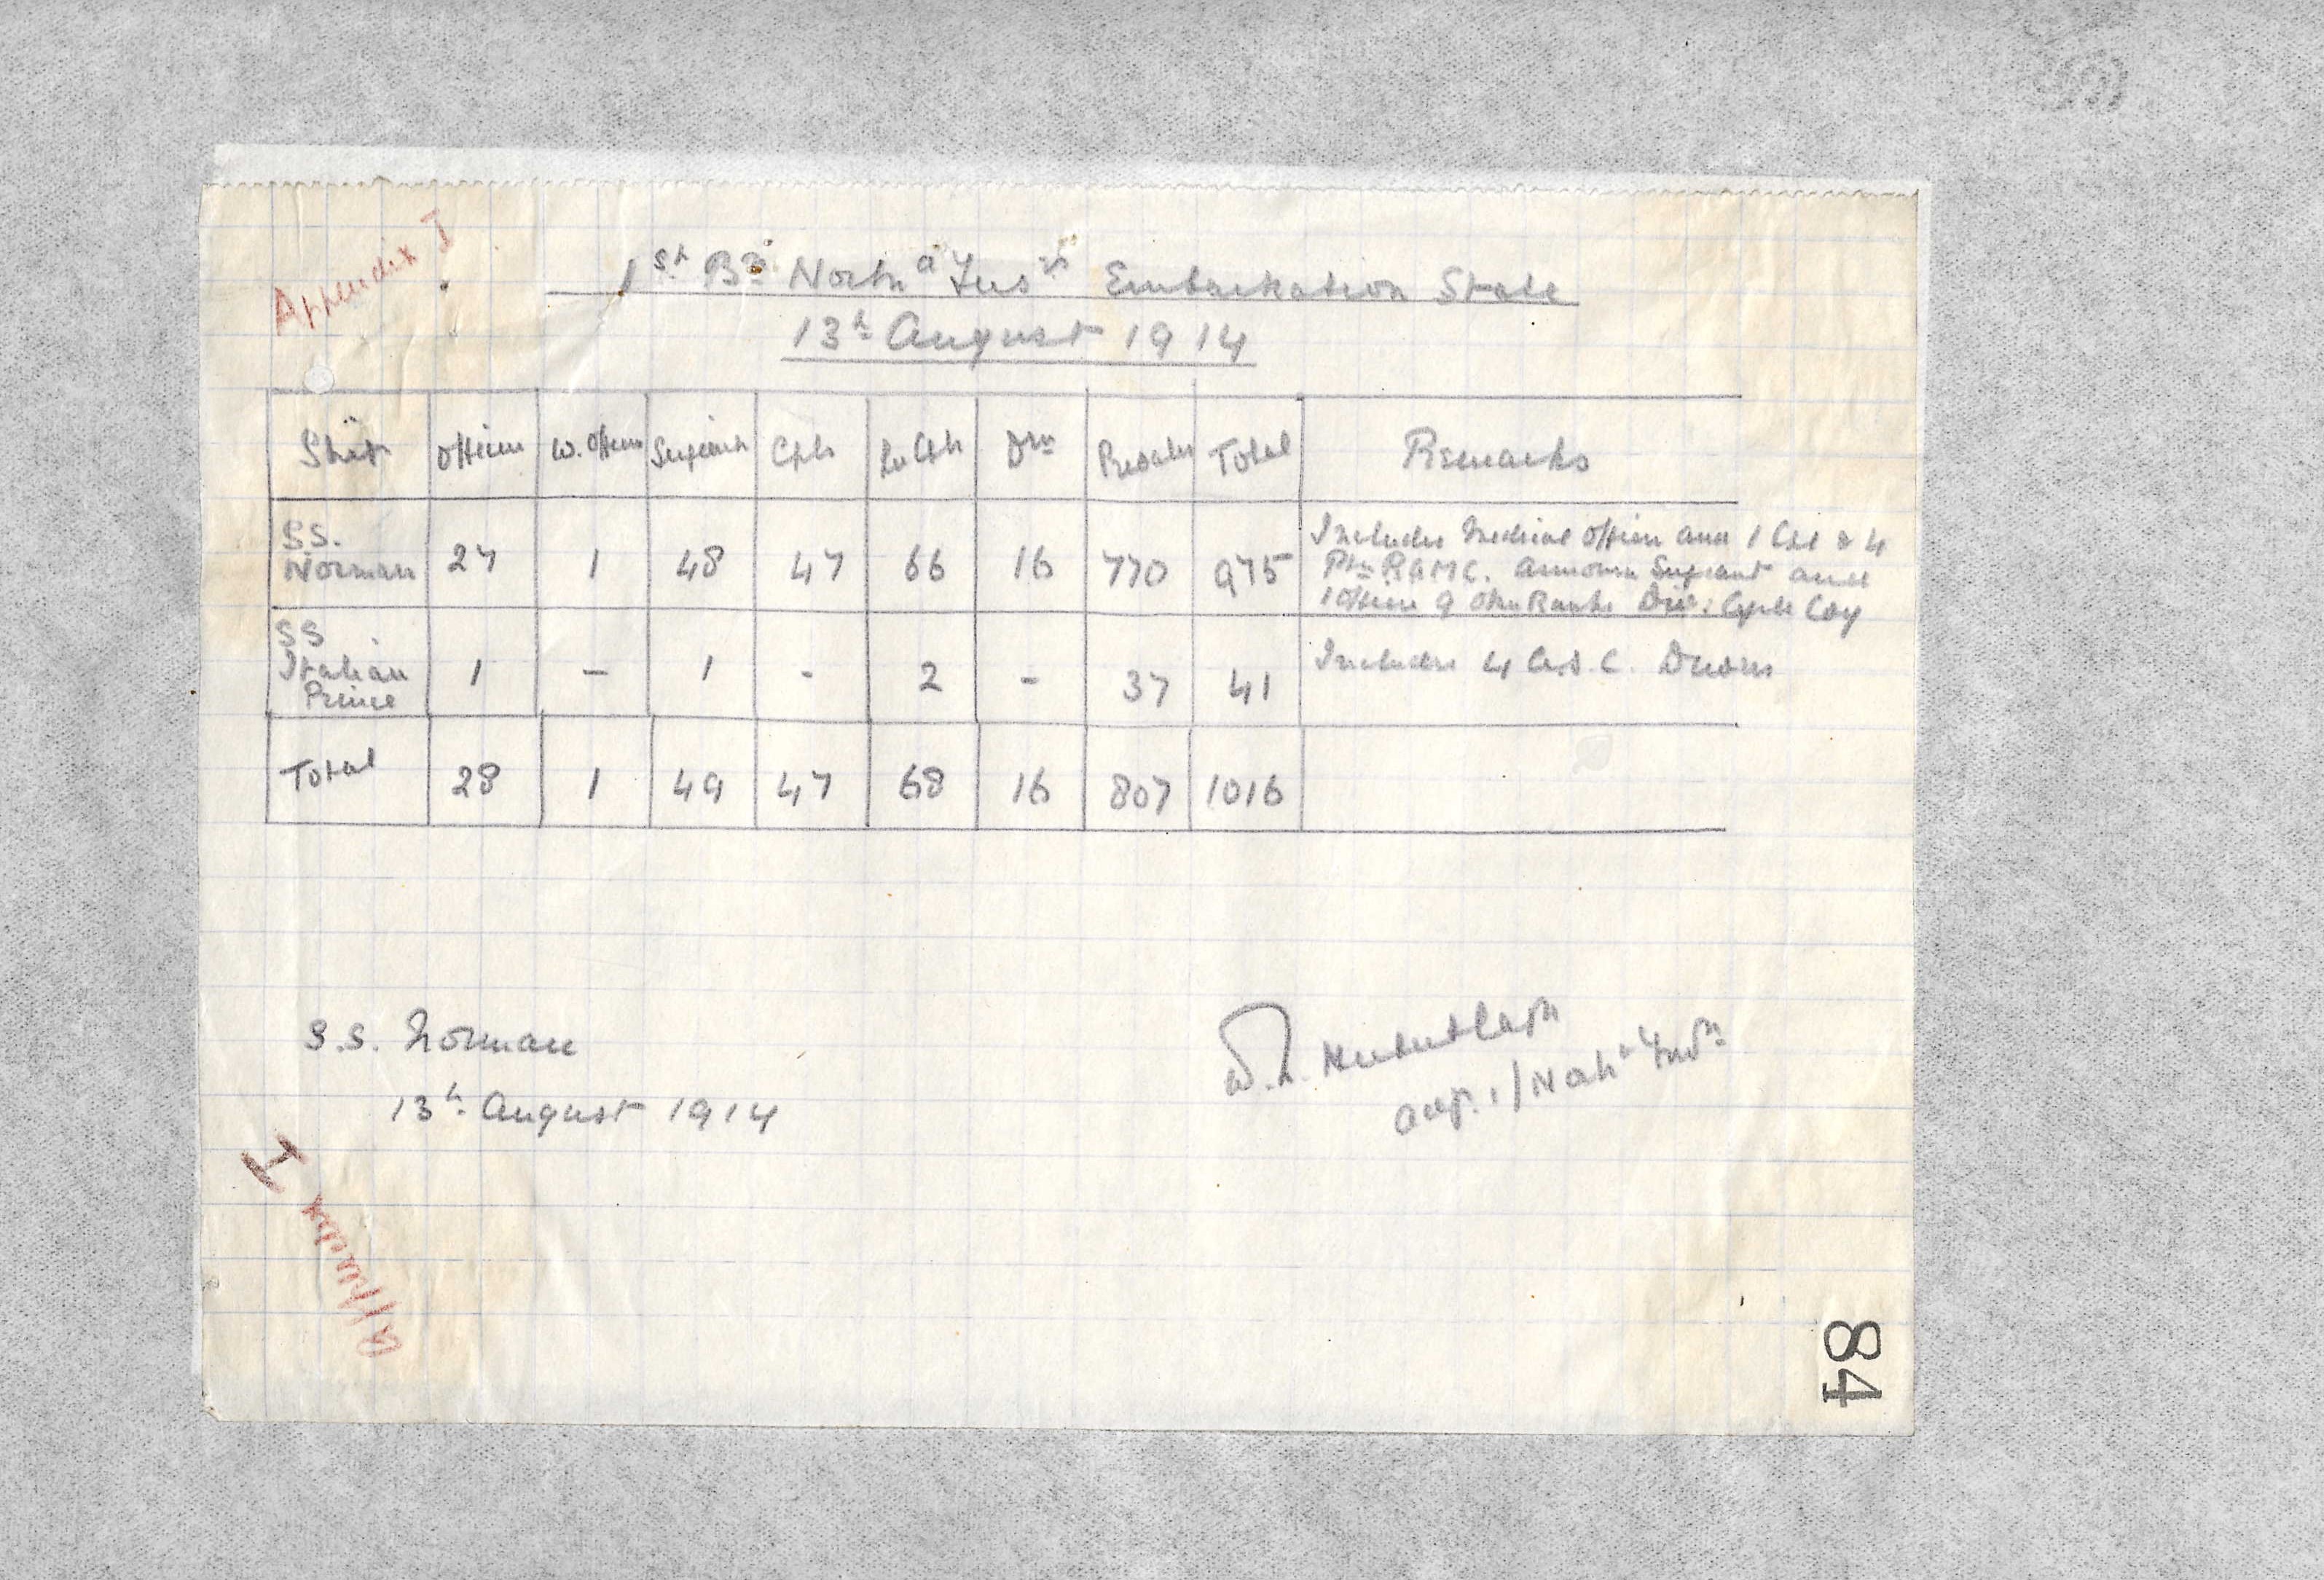 Appendix I
1st Bn North'd Fusrs Embarkation State
13th August 1914
Ship Officers W. Officers Sergeants Cpls L/Cpls Drs Privates Total Remarks
SS. Norman 27 1 48 47 66 16 770 975 Includes Medical Officer and 1 Cpl & 4
Ptes RAMC. Armourer Sergeant and
1 Officer 9 Other Ranks Div: Cycle Coy
SS Italian Prince 1 - 1 - 2 - 37 41 Includes 4 A.S.C. Drivers
Total 28 1 49 47 68 16 807 1016
S.S. Norman
13th August 1914
W.L. Capt
1/North'd Fus
Appendix I
84